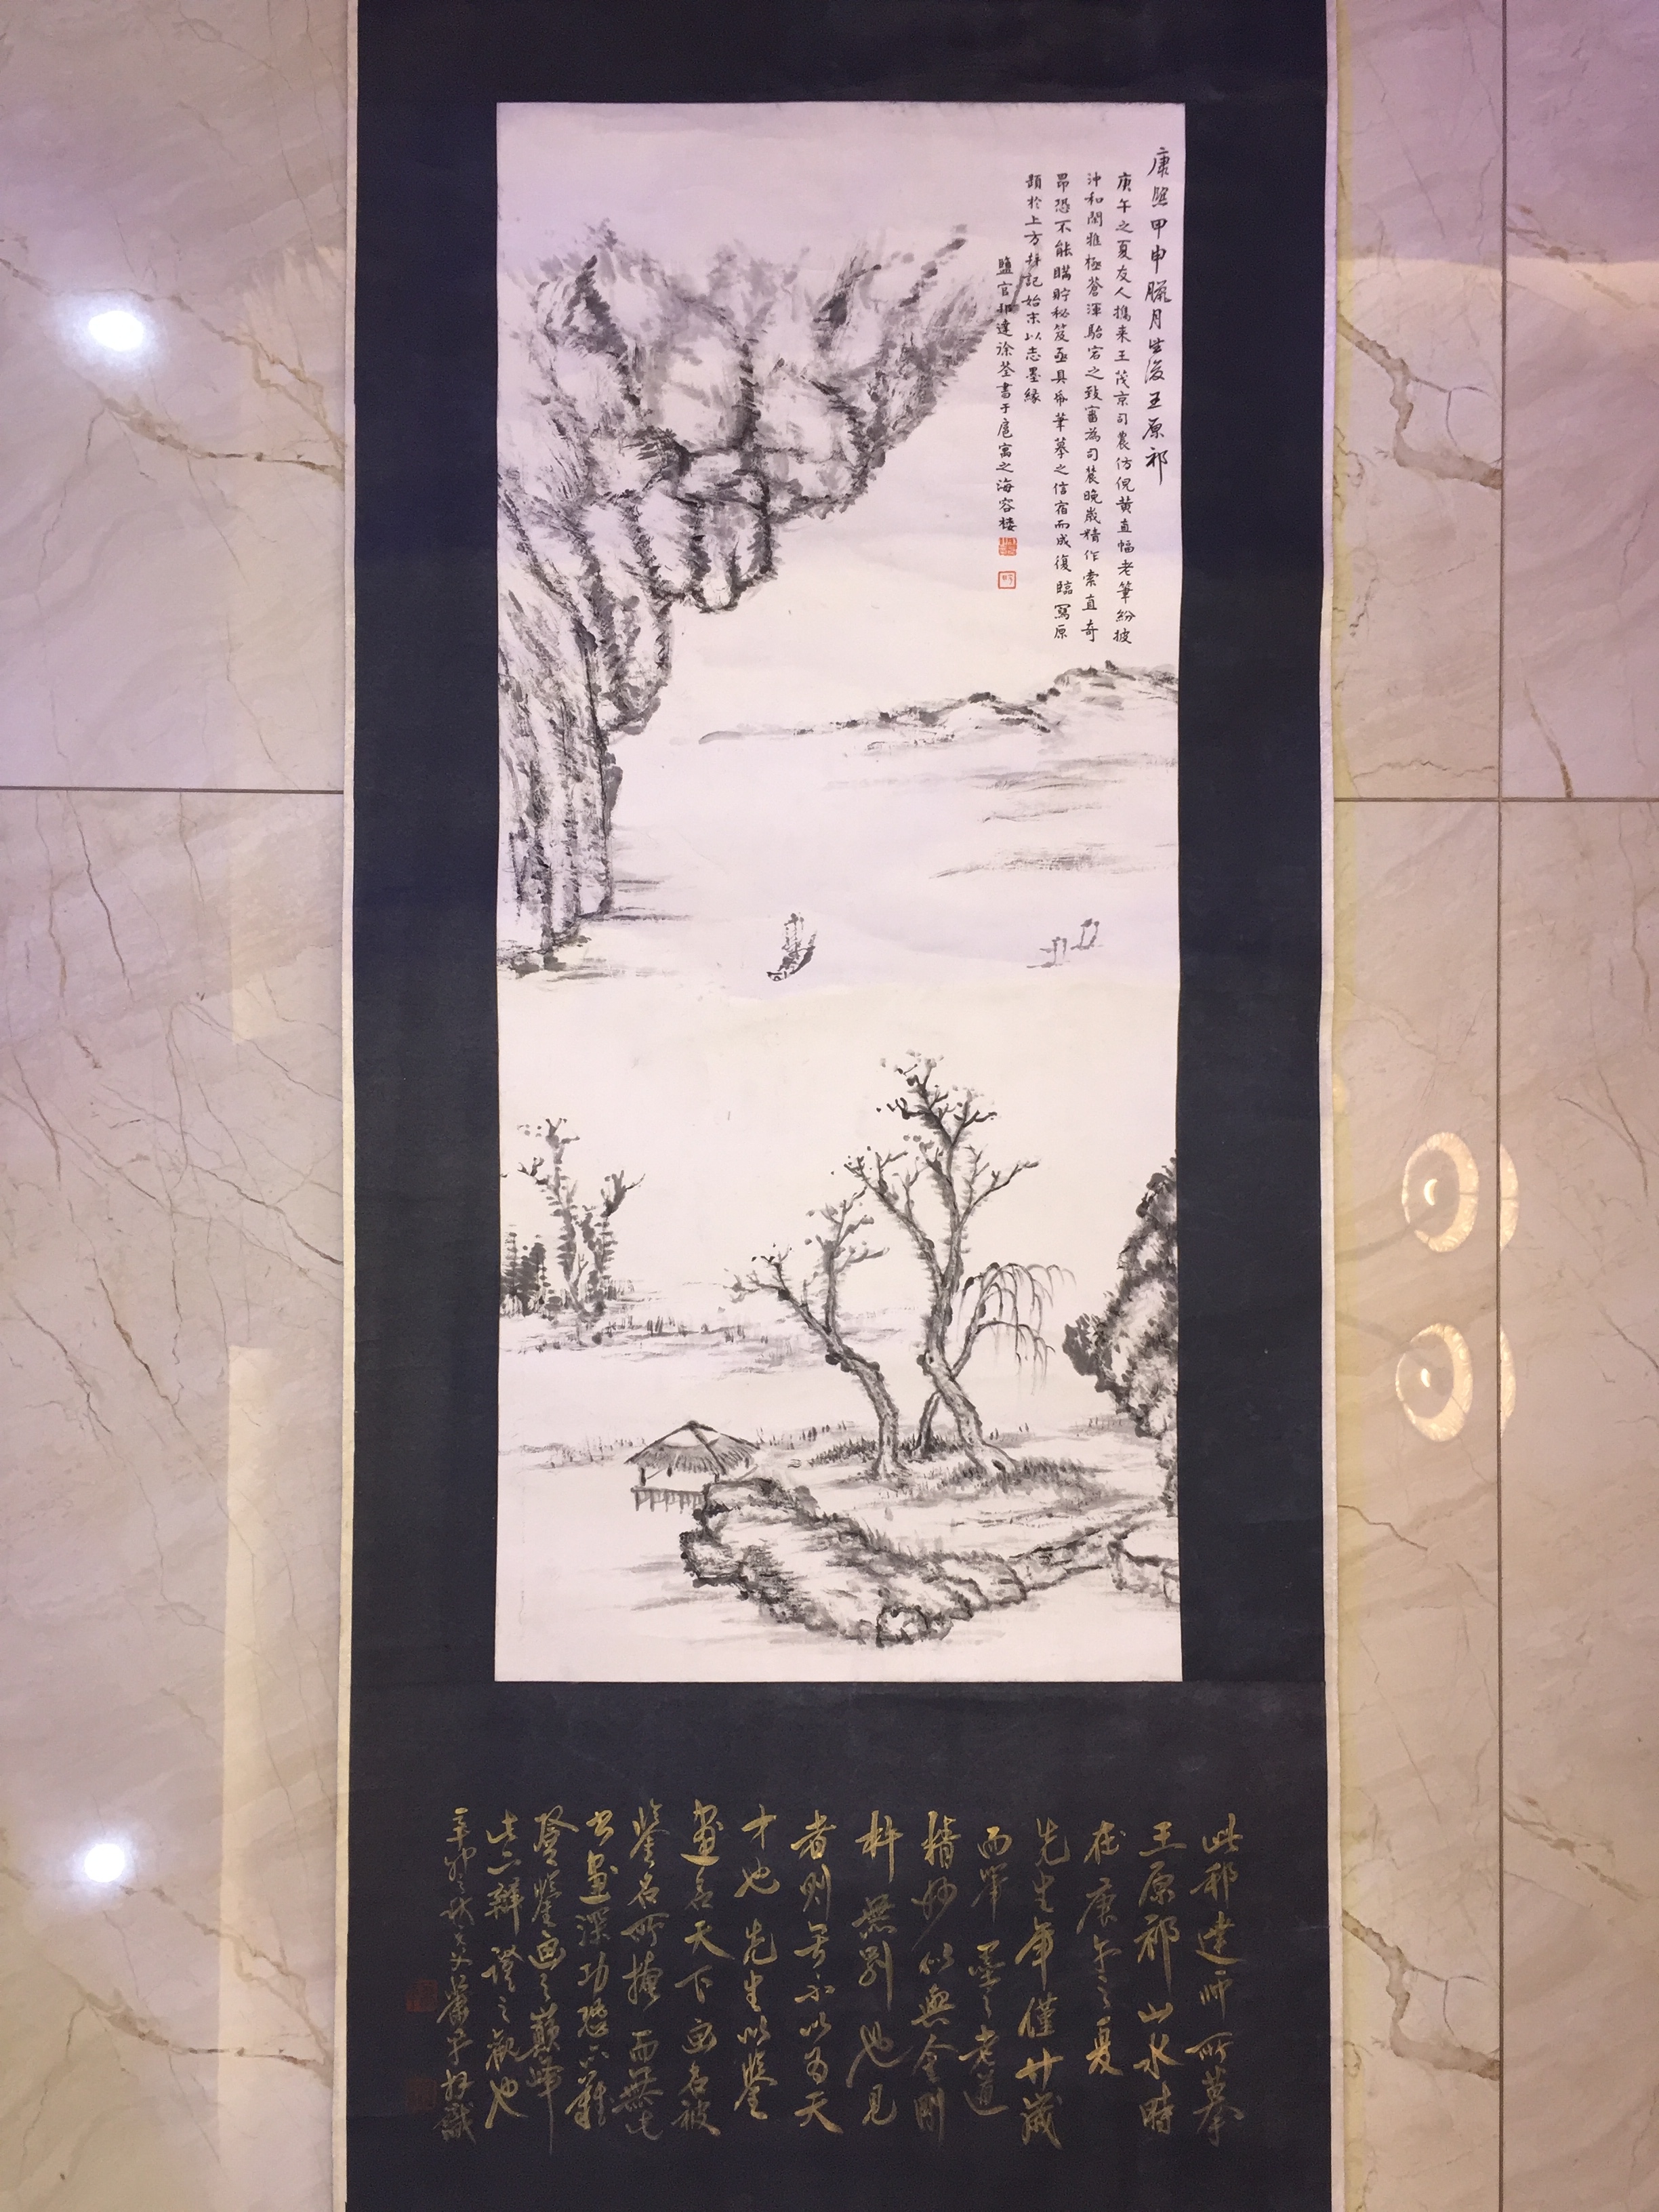 康熙甲申臘月望後王原祁
庚午之夏友人攜来王茂京司農仿倪黄直幅老筆紛披
沖和閑雅極蒼渾駘宕之致審為司農晚歲精作索直奇
昂恐不能購貯秘笈亟具紙筆摹之信宿而成復臨寫原
題於上方并記始末以志墨緣
鹽官邦達徐荃書于扈寓之海容樓
此邦達师所摹
王原祁山水時
在庚午之夏
先生年僅廿歲
而筆墨之老道
精妙似無金剛
杵無别也見
者則無不以為天
才也先生以鑒
畫名天下画名被
鑒名所掩而無此
書画深功恐亦難
登鑒画之巔峰
此二辩證之觀也
辛卯之秋